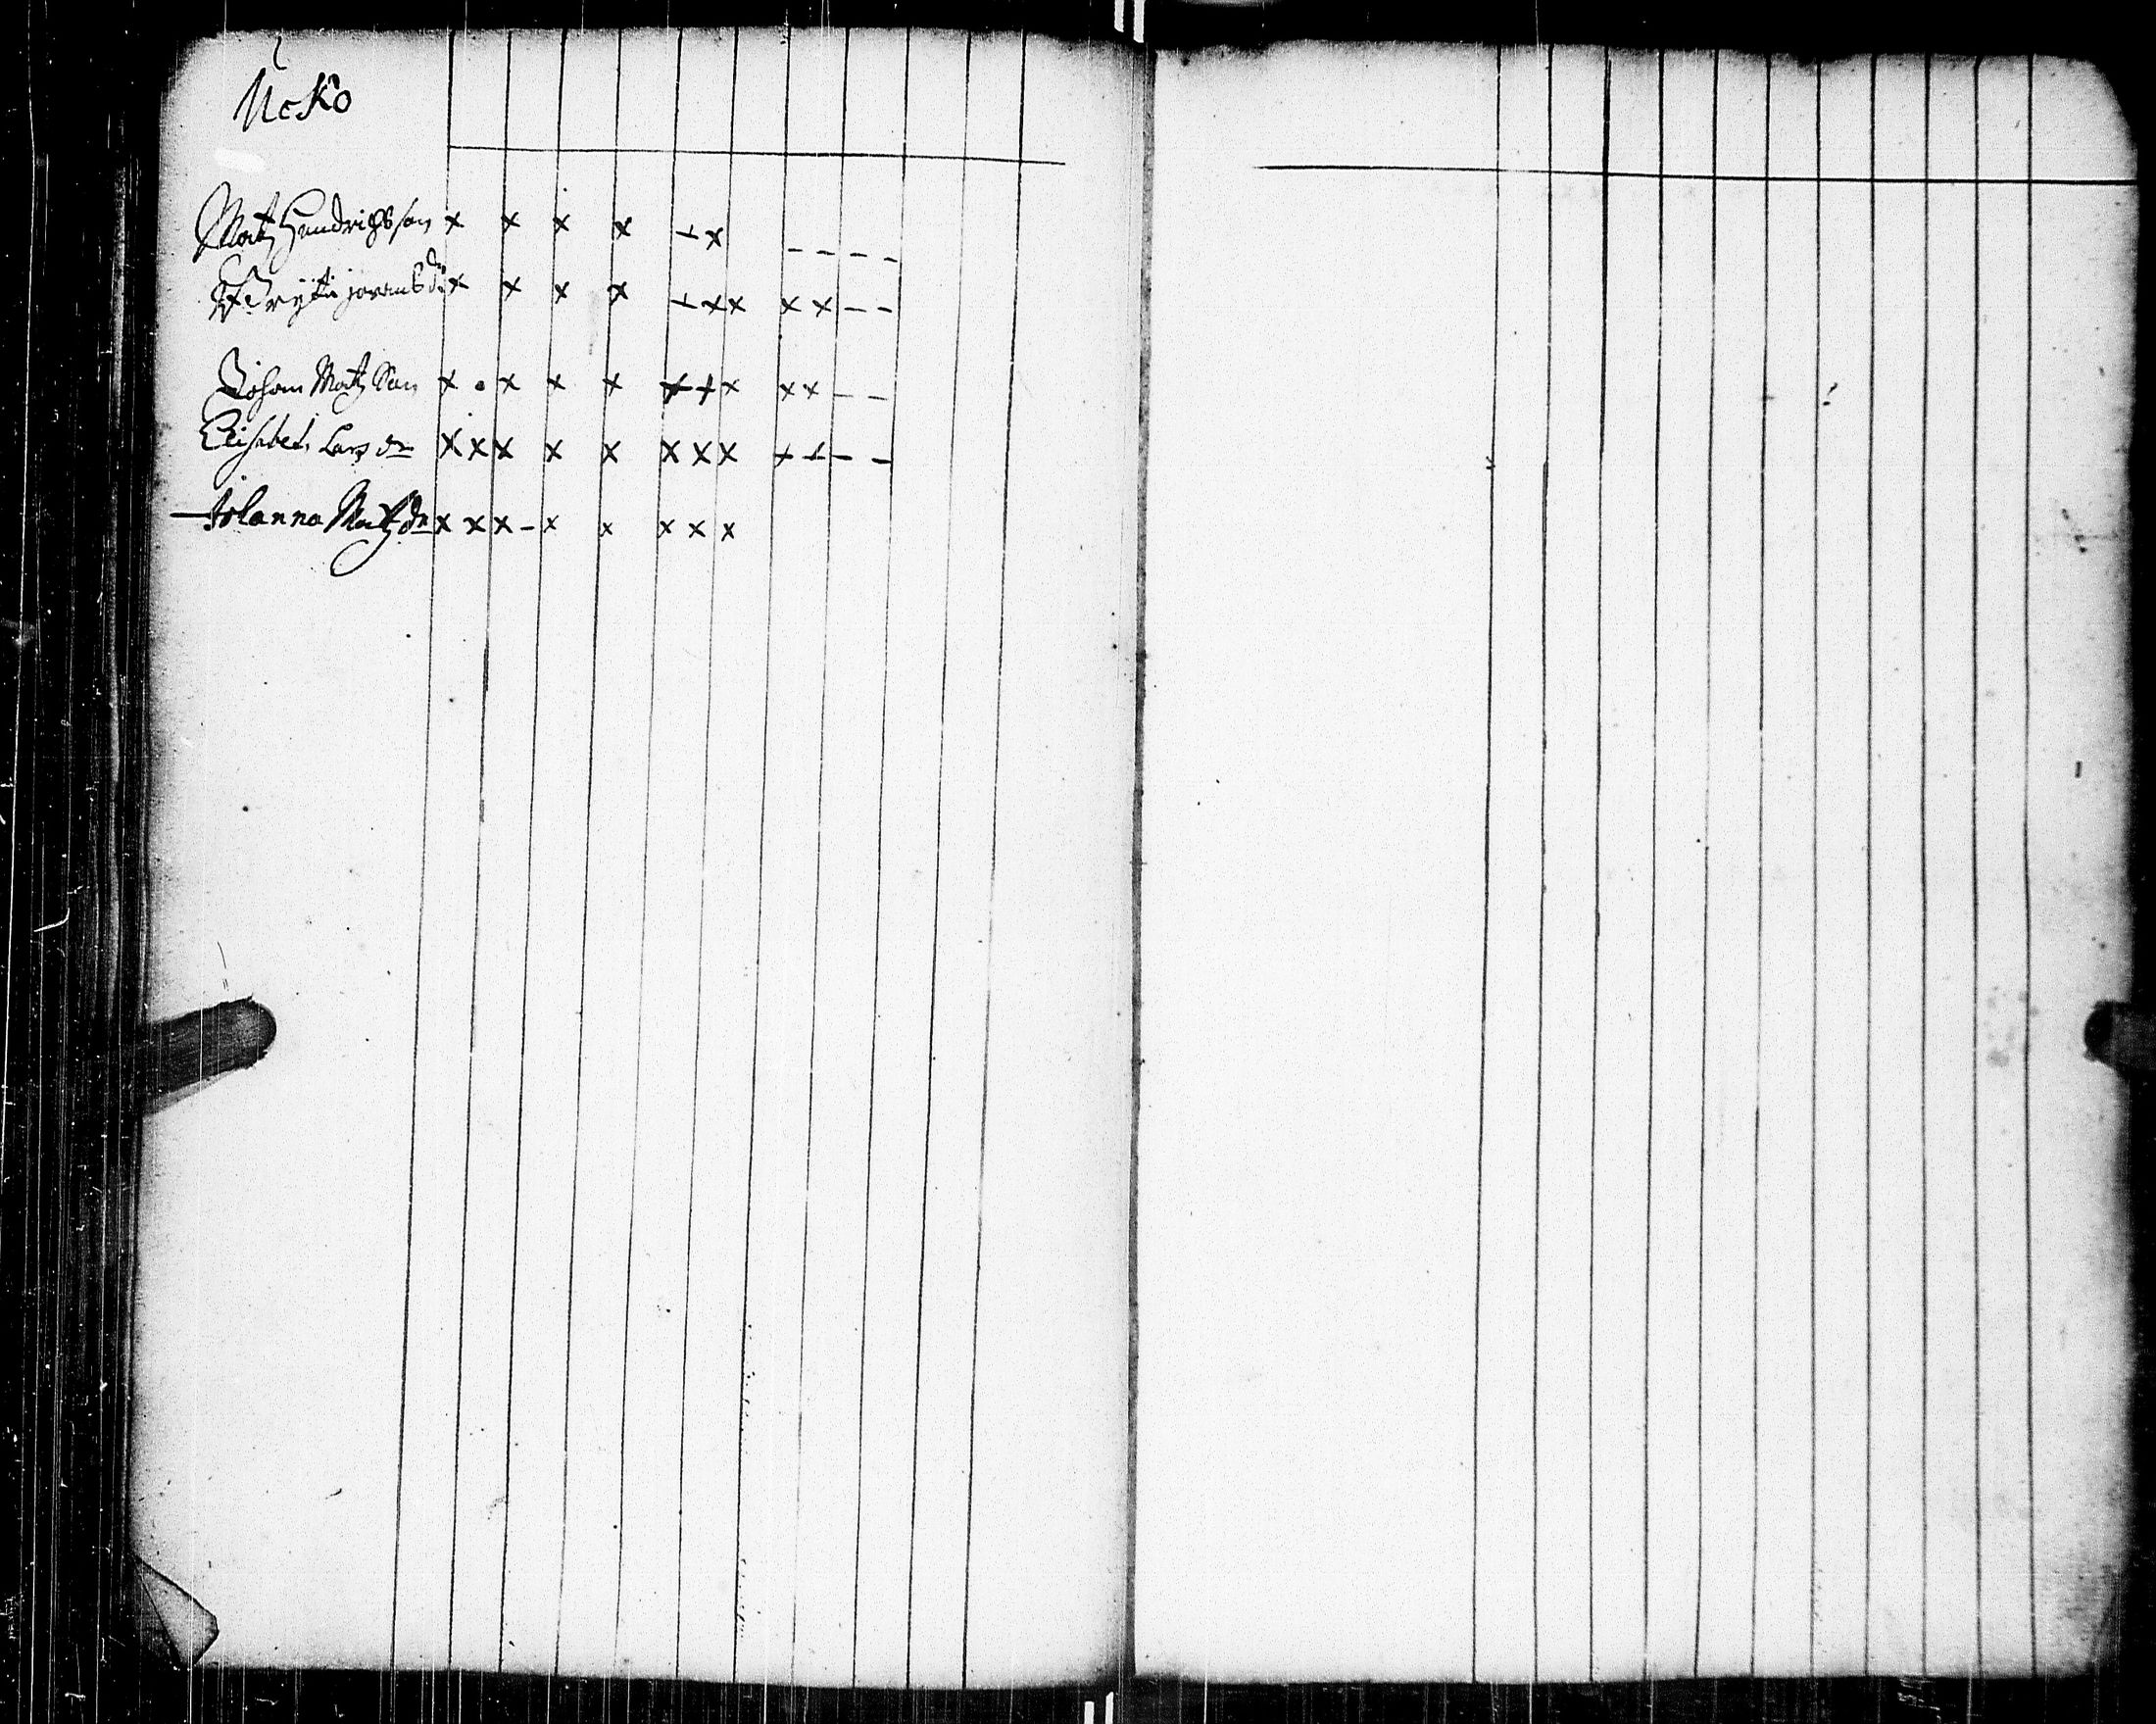 Matz Hendrichsson x x x x + x - - - -
jöransdr x x x x + x x x x - -
Johan Matzson x . x x x x + x x x - -
Elisabet Larsdr x x x x x x x x + + - -
Johanna Matzdr x x x - x x x x x